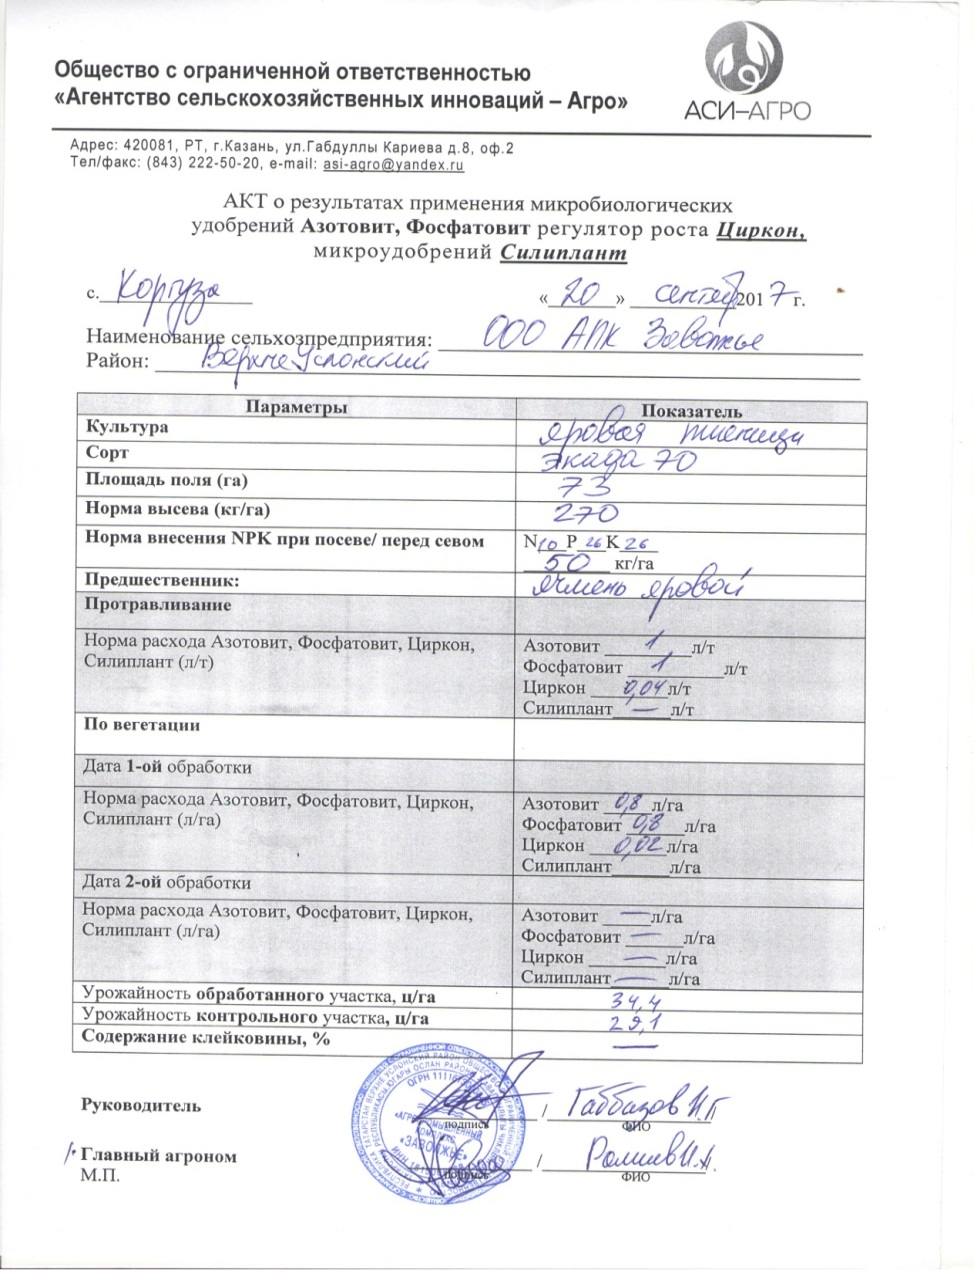 Общество с ограниченной ответственностью
«Агентство сельскохозяйственных инноваций – Агро»
АСИ–АГРО
Адрес: 420081, РТ, г.Казань, ул.Габдуллы Кариева д.8, оф.2
Тел/факс: (843) 222-50-20, e-mail: asi-agro@yandex.ru
АКТ о результатах применения микробиологических
удобрений Азотовит, Фосфатовит регулятор роста Циркон,
микроудобрений Силиплант
с. Коргуза «20» сентяб 2017 г.
Наименование сельхозпредприятия: ООО АПК Заволжье
Район: Верхне Услонский
Параметры Показатель
Культура яровая пшеница
Сорт Экада 70
Площадь поля (га) 73
Норма высева (кг/га) 270
Норма внесения NPK при посеве/ перед севом N 10 P 26 K 26
50 кг/га
Предшественник: ячмень яровой
Протравливание
Норма расхода Азотовит, Фосфатовит, Циркон,
Силиплант (л/т)
Азотовит 1 л/т
Фосфатовит 1 л/т
Циркон 0,04 л/т
Силиплант — л/т
По вегетации
Дата 1-ой обработки
Норма расхода Азотовит, Фосфатовит, Циркон,
Силиплант (л/га)
Азотовит 0,8 л/га
Фосфатовит 0,8 л/га
Циркон 0,02 л/га
Силиплант л/га
Дата 2-ой обработки
Норма расхода Азотовит, Фосфатовит, Циркон,
Силиплант (л/га)
Азотовит — л/га
Фосфатовит — л/га
Циркон — л/га
Силиплант — л/га
Урожайность обработанного участка, ц/га 34,4
Урожайность контрольного участка, ц/га 29,1
Содержание клейковины, % —
Руководитель / Габбазов И.Г
подпись ФИО
«ЗАВОЛЖЬЕ»
Главный агроном /
подпись ФИО
М.П.